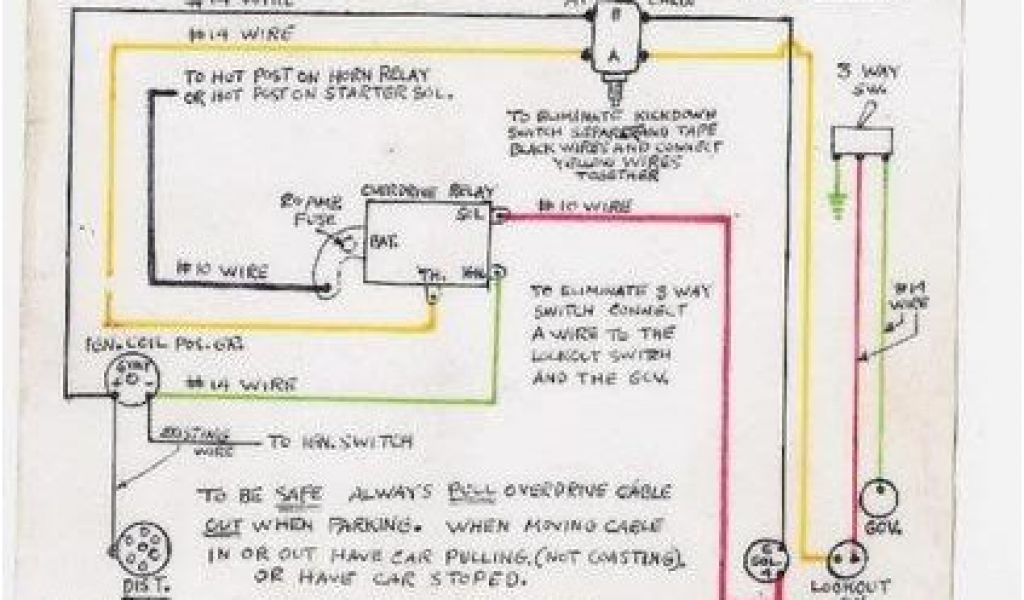 #14 WIRE
B
CABLE
#14 WIRE
A
TO HOT POST ON HORN RELAY
OR HOT POST ON STARTER SOL.
3 WAY
SW.
TO ELIMINATE KICKDOWN
SWITCH SEPARE AND TAPE
BLACK WIRES AND CONNECT
YELLOW WIRES
TOGETHER
OVERDRIVE RELAY
20 AMP
FUSE
SOL
#10 WIRE
BAT.
#10 WIRE
TH.
IGN.
TO ELIMINATE 3 WAY
SWITCH CONNECT
A WIRE TO THE
LOCKOUT SWITCH
AND THE GOV.
#14
WIRE
IGN. COIL POS. GR.
6 VOLT
- +
#14 WIRE
EXISTING
WIRE
TO IGN. SWITCH
TO BE SAFE ALWAYS PULL OVERDRIVE CABLE
OUT WHEN PARKING. WHEN MOVING CABLE
IN OR OUT HAVE CAR PULLING, (NOT COASTING),
OR HAVE CAR STOPED.
GOV.
DIST.
6
SOL.
4
LOCKOUT
SW.